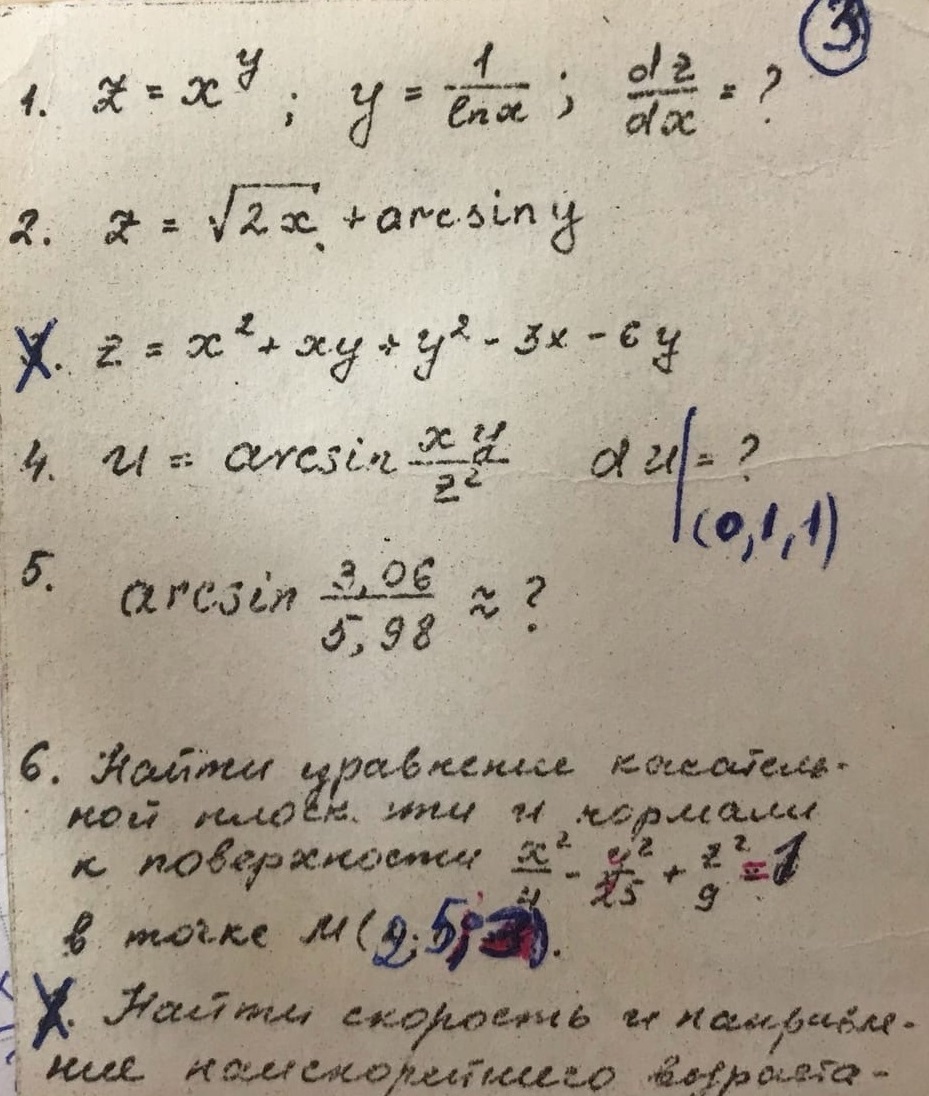 3
1. z = x^y ; y = 1/ln x ; dz/dx = ?
2. z = √2x + arcsin y
z = x² + xy + y² - 3x - 6y
4. u = arcsin xy/z² du|(0,1,1) = ?
5. arcsin 3,06/5,98 ≈ ?
6. Найти уравнение касатель-
ной плоск. ти и нормали
к поверхности x²/4 - y²/25 + z²/9 = 1
в точке M(2; 5; 3).
Найти скорость и направле-
ние наискорейшего возраста-